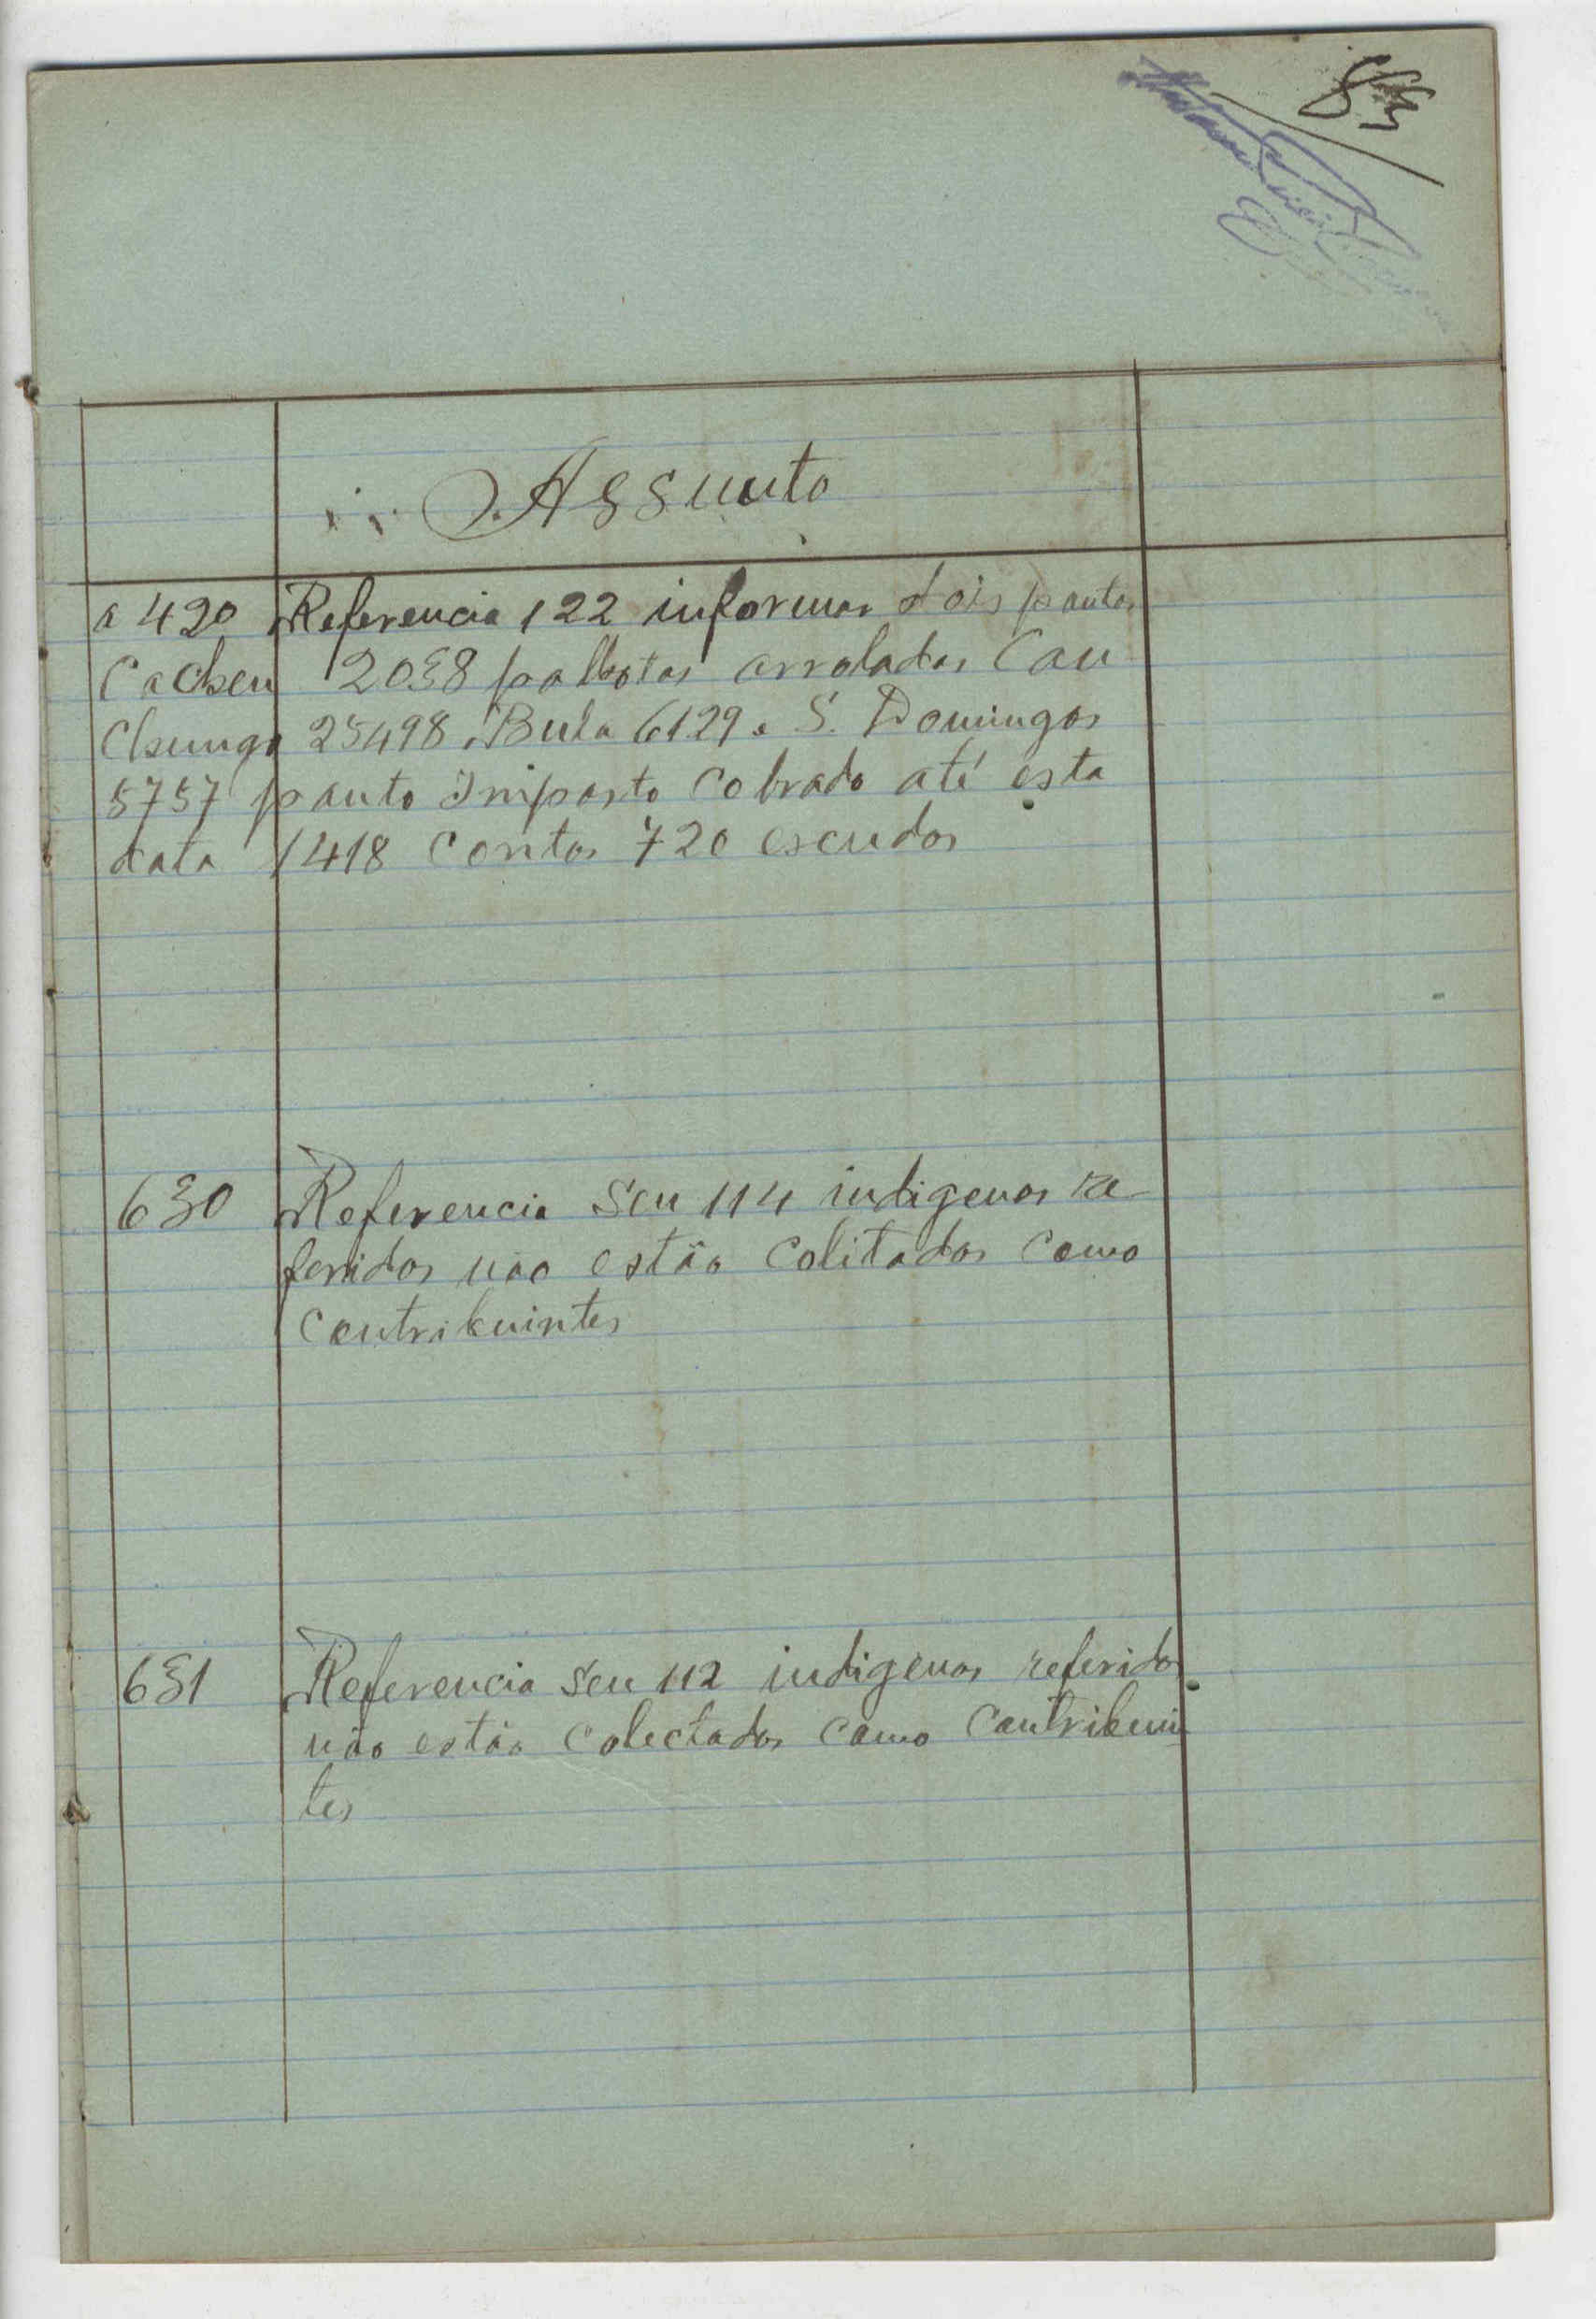 83
Assunto
a 420 Referencia 122 informar dois pontos
Cacheu 2038 palhotas arroladas Can
chungo 25498, Bula 6129. S. Domingos
5757 ponto Imposto Cobrado até esta
data 1418 Contos 720 escudos
630 Referencia seu 114 indigenas re
feridos não estão Colitados Como
Contribuintes
631 Referencia seu 112 indigenas referidos
não estão Colectados Como Contribuin
tes